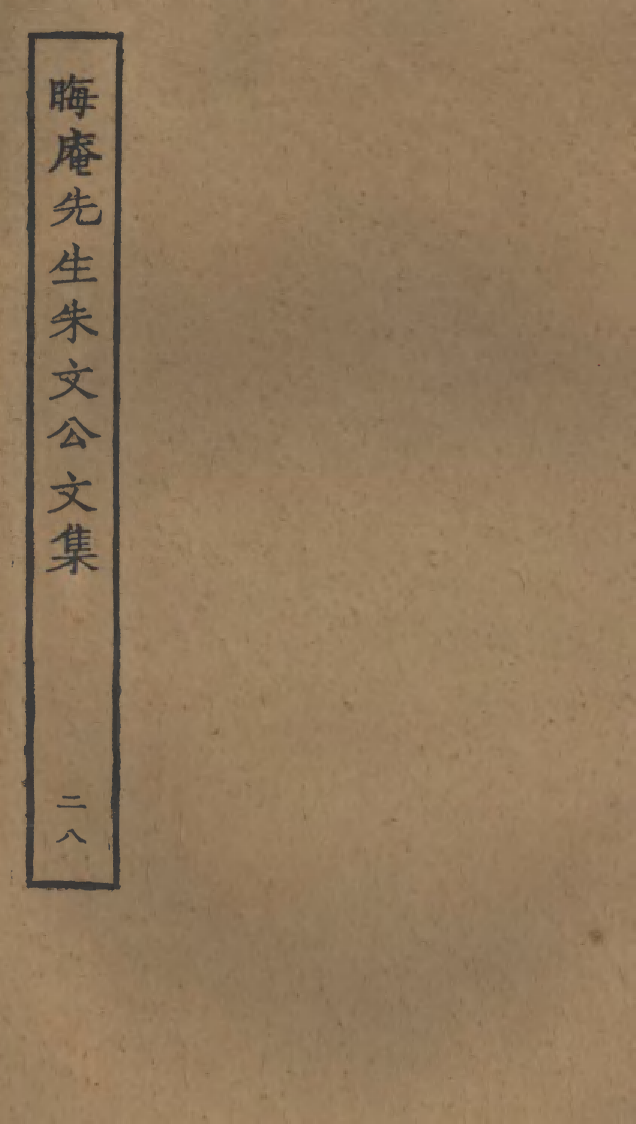 晦庵先生朱文公文集
二八